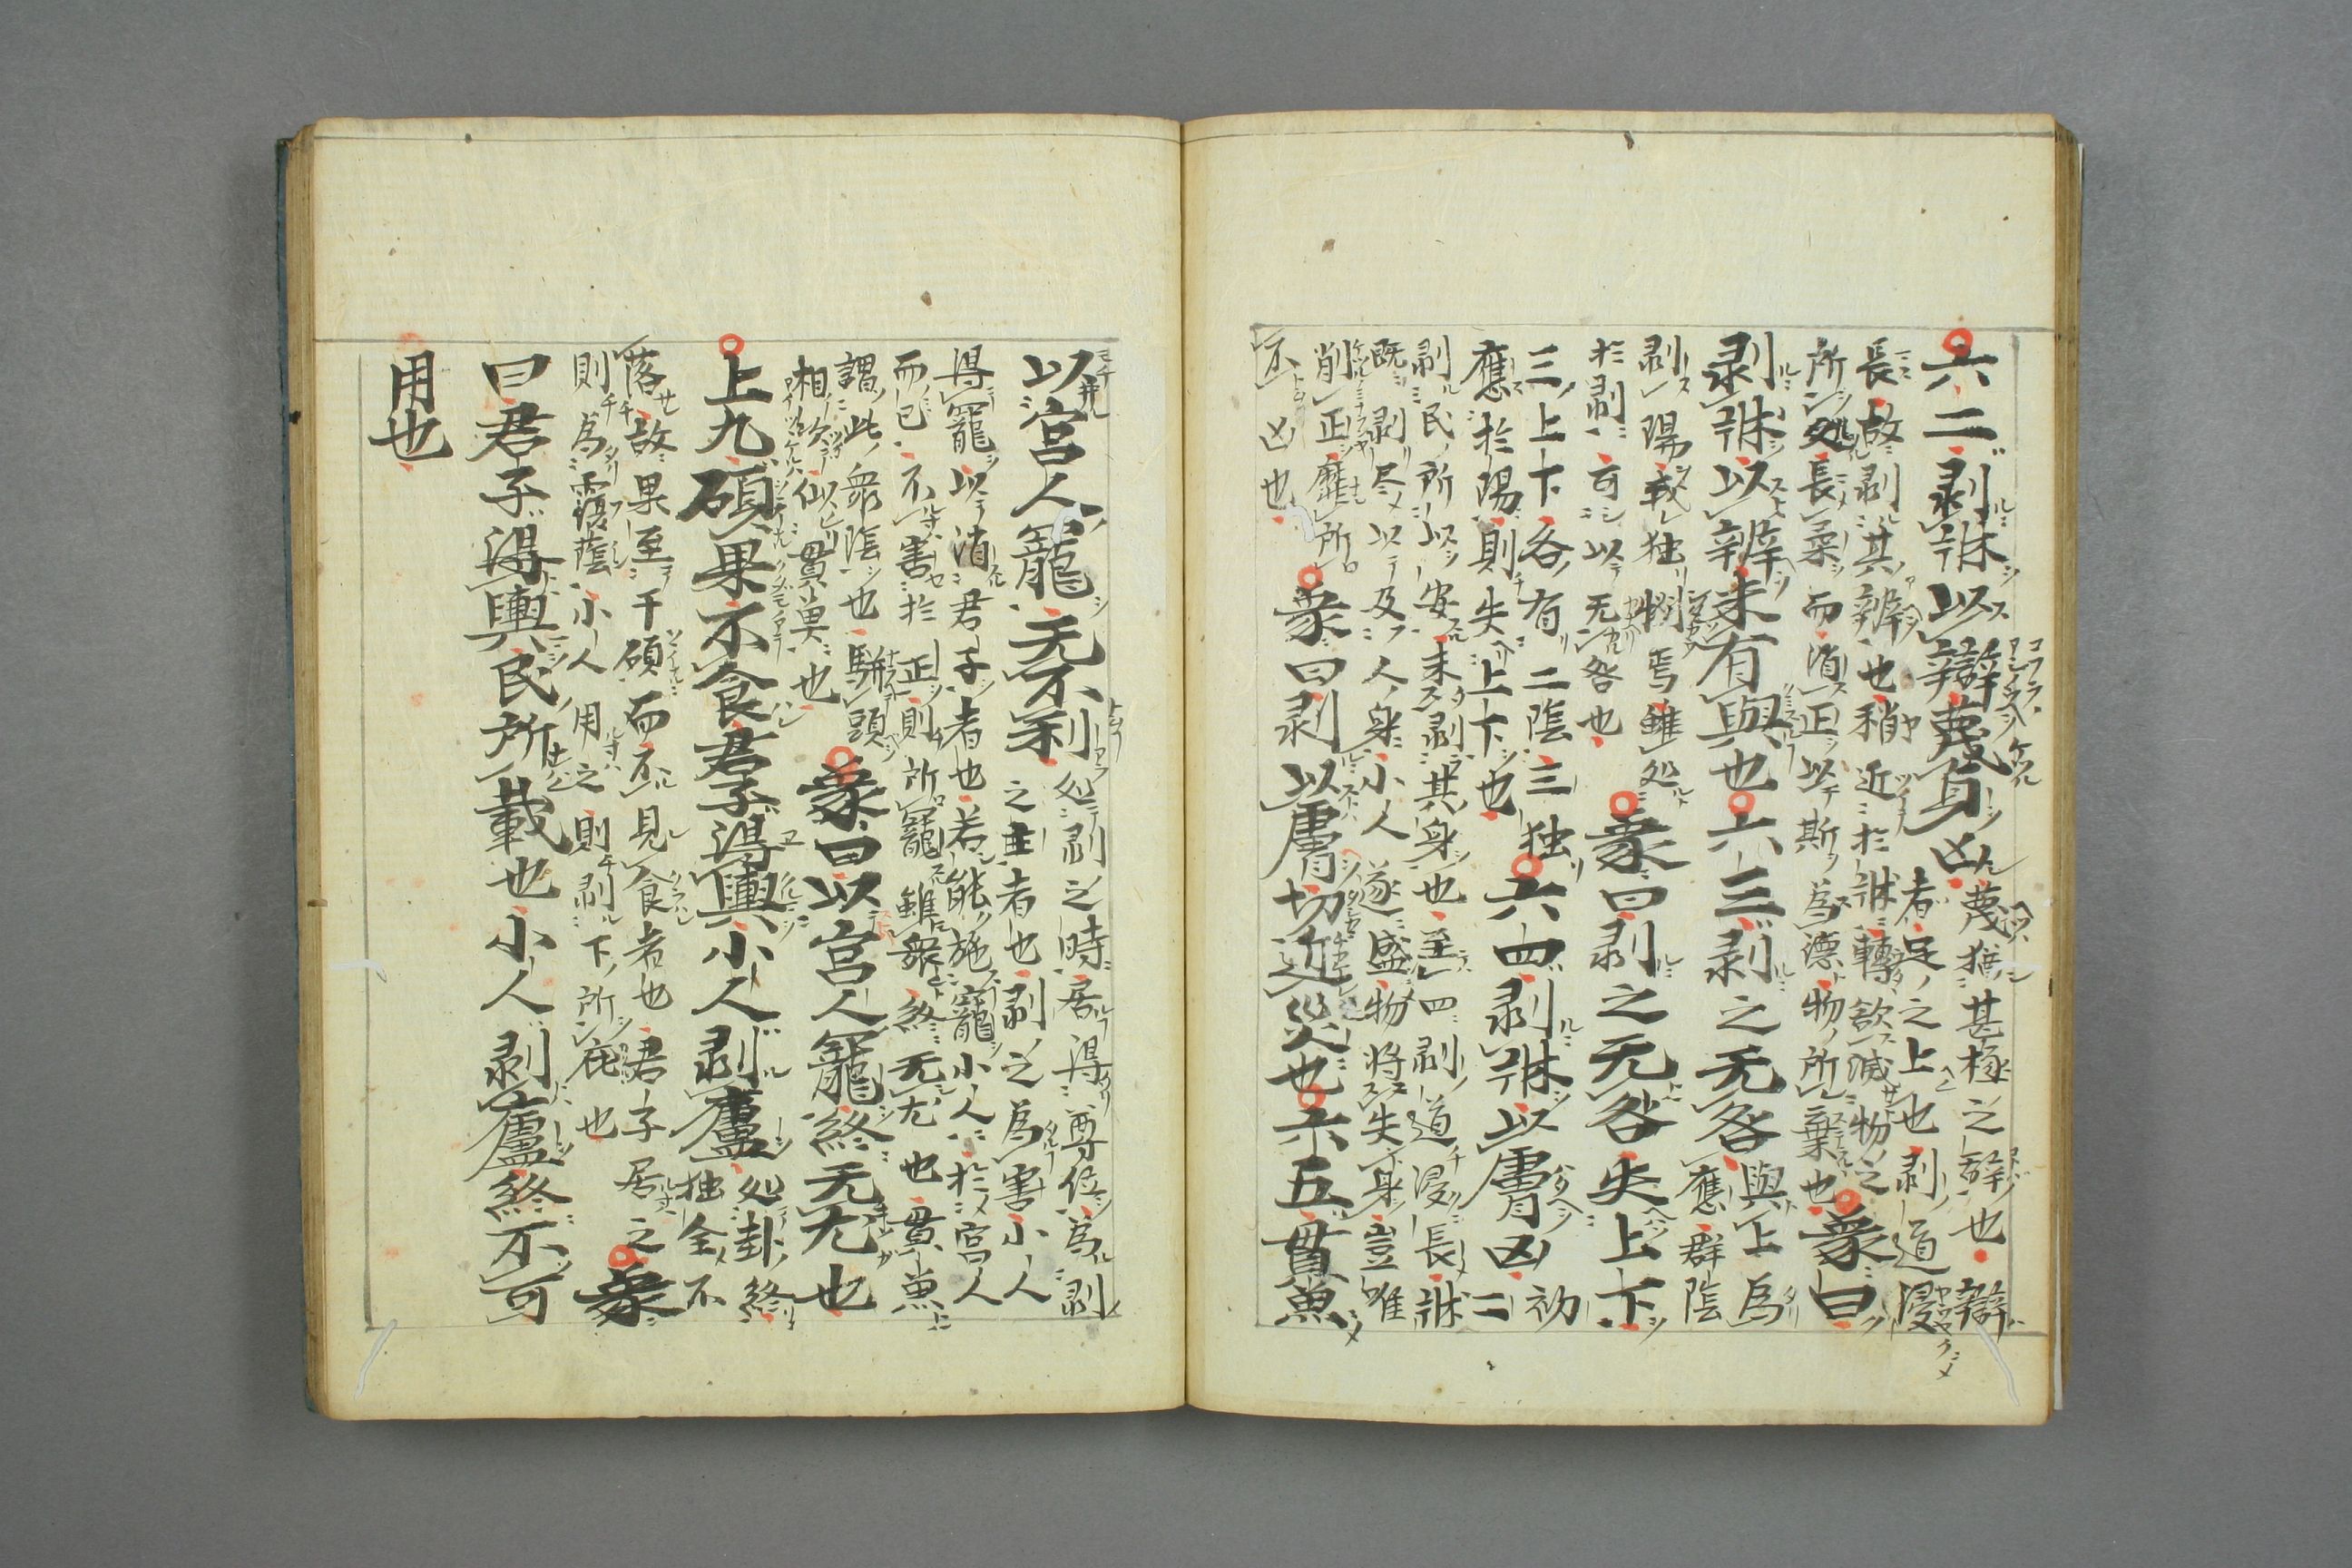 六二剥牀以辯蔑貞凶
蔑猶甚極之辭也辯
者足之上也剥道浸
長故剥其辨也稍近於牀轉欲滅物之
所処長柔而消正以斯爲德物所棄也
象曰
剥牀以辨未有與也六三剥之无咎
與上爲
應群陰
剥陽我独恊焉雖処
於剥可以无咎也
象曰剥之无咎失上下
三上下各有二陰三独
應於陽則失上下也
六四剥牀以膚凶
初
二
剥民所以安未剥其身也至四剥道浸長牀
既剥尽以及人身小人遂盛物将失身豈唯
削正靡所
不凶也
象曰剥以膚切近災也六五貫魚
以宮人寵无不利
処剥之時居得尊位爲剥
之主者也剥之爲害小人
得寵以消君子者也若能施寵小人於宮人
而已不害於正則所寵雖衆終无尤也貫魚
謂此衆陰也駢頭
相次似貫魚也
象曰以宮人寵終无尤也
上九碩果不食君子得輿小人剥廬
処卦終
独全不
落故果至于碩而不見食者也君子居之
則爲覆蔭小人用之則剥下所庇也
象
曰君子得輿民所載也小人剥廬終不可
用也